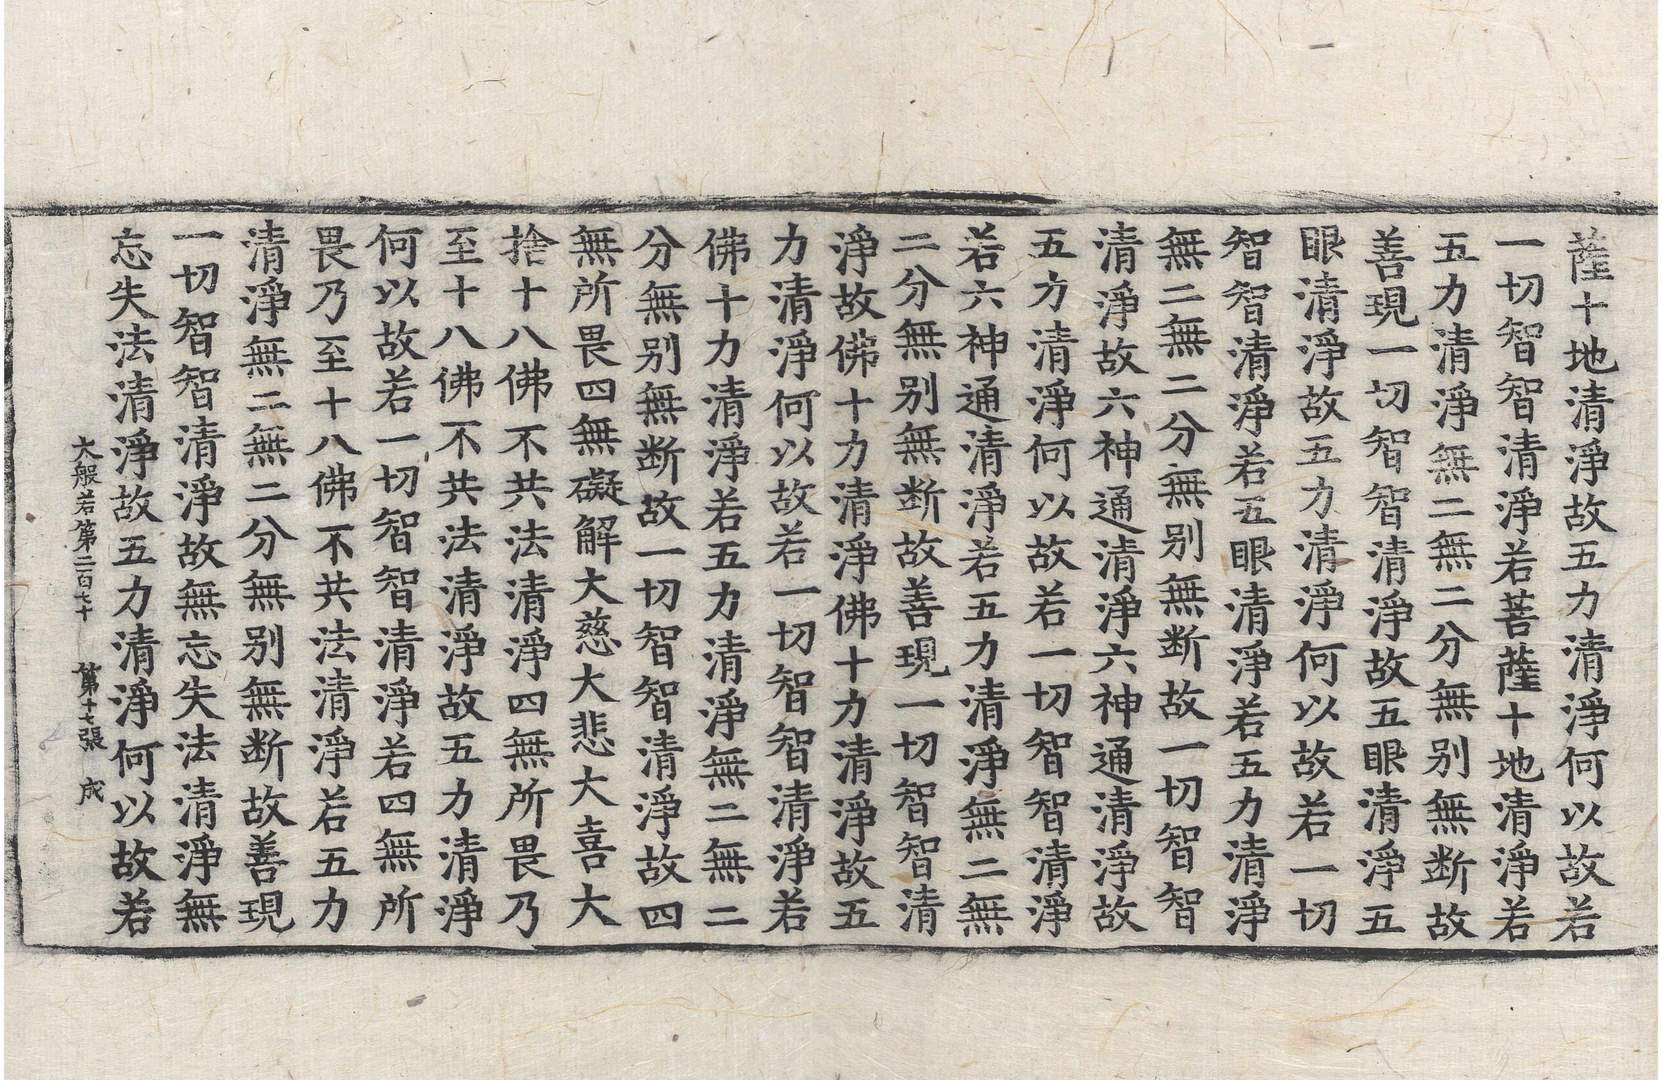 薩十地清淨故五力清淨何以故若
一切智智清淨若菩薩十地清淨若
五力清淨無二無二分無别無断故
善現一切智智清淨故五眼清淨五
眼清淨故五力清淨何以故若一切
智智清淨若五眼清淨若五力清淨
無二無二分無别無断故一切智智
清淨故六神通清淨六神通清淨故
五力清淨何以故若一切智智清淨
若六神通清淨若五力清淨無二無
二分無别無断故善現一切智智清
淨故佛十力清淨佛十力清淨故五
力清淨何以故若一切智智清淨若
佛十力清淨若五力清淨無二無二
分無别無断故一切智智清淨故四
無所畏四無礙解大慈大悲大喜大
捨十八佛不共法清淨四無所畏乃
至十八佛不共法清淨故五力清淨
何以故若一切智智清淨若四無所
畏乃至十八佛不共法清淨若五力
清淨無二無二分無别無断故善現
一切智智清淨故無忘失法清淨無
忘失法清淨故五力清淨何以故若
大般若第二百七十 第十七張 成